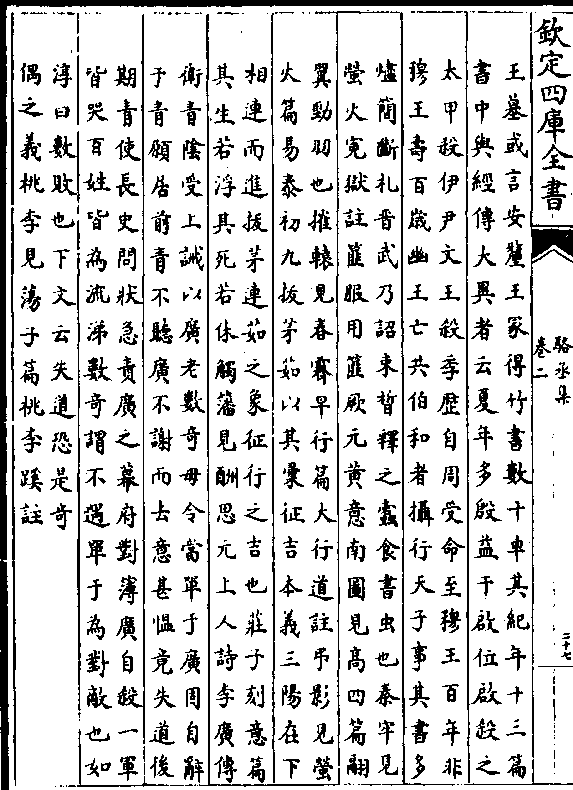 欽定四庫全書
駱丞集
卷二
二十七
王墓或言安釐王冢得竹書數十車其紀年十三篇
書中與經傳大異者云夏年多殷益干啟位啟殺之
太甲殺伊尹文王殺季歷自周受命至穆王百年非
穆王壽百歲幽王亡共伯和者攝行天子事其書多
燼簡斷札晉武乃詔束晳釋之蠹食書虫也秦牢見
螢火寃獄註簠服用簠厥元黄意南圖見高四篇翮
翼勁羽也摧轅見春霽早行篇大行道註弔影見螢
火篇易泰初九拔茅茹以其彚征吉本義三陽在下
相連而進拔茅連茹之象征行之吉也莊子刻意篇
其生若浮其死若休觸藩見酬思元上人詩李廣傳
衛青陰受上誡以廣老數奇毋令當單于廣固自辭
于青願居前青不聽廣不謝而去意甚愠竟失道後
期青使長史問狀急責廣之幕府對簿廣自殺一軍
皆哭百姓皆為流涕數奇謂不遇單于為對敵也如
淳曰數敗也下文云失道恐是奇
偶之義桃李見蕩子篇桃李蹊註